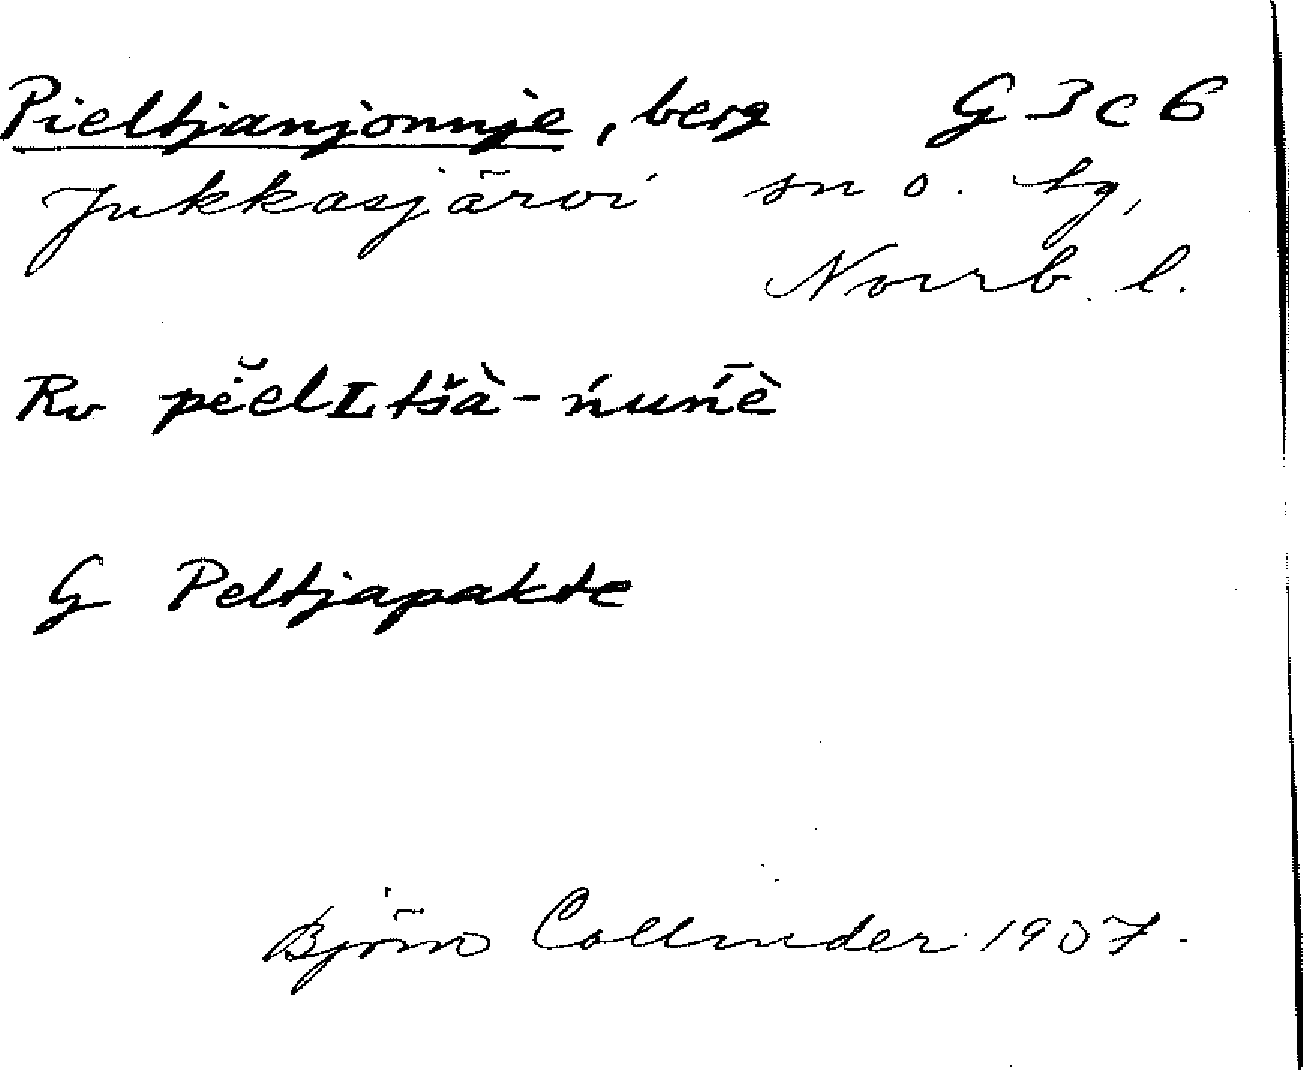 Pieltjanjonnje, berg G 3 c 6
Jukkasjärvi sn o. tg,
Norrb. l.
Rv pĕelLtšà-ńuńḕ
G Peltjapakte
Björn Collinder 1957.